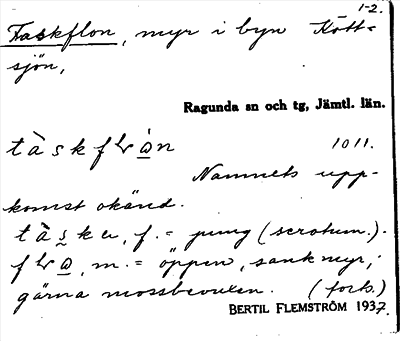 1-2.
Taskflon, myr i byn Kött-
sjön,
Ragunda sn och tg, Jämtl. län.
tàskflὼn 1011.
Namnets upp-
komst okänd.
tàske, f. = pung (scrotum.).
flω, m. = öppen, sank myr,
gärna mossbevuxen. (forts.)
BERTIL FLEMSTRÖM 1937.